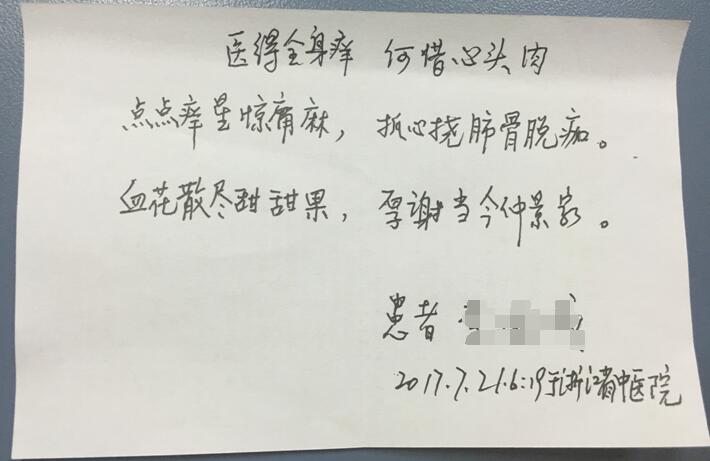 医得全身痒 何惜心头肉
点点痒星惊痛麻，抓心挠肺骨脱痂。
血花散尽甜甜果，厚谢当今仲景家。
患者
2017.7.21.6:19于浙江省中医院